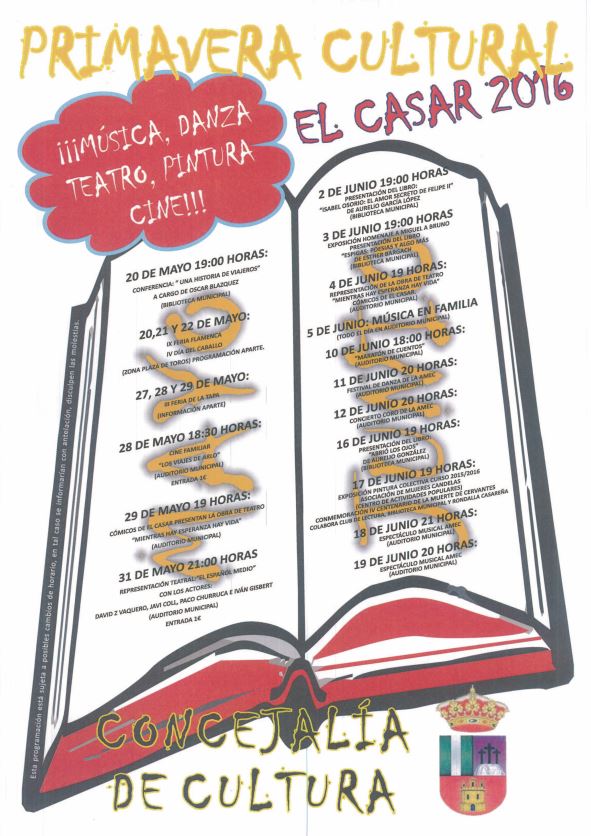 PRIMAVERA CULTURAL
EL CASAR 2016
¡¡¡MÚSICA, DANZA
TEATRO, PINTURA
CINE!!!
20 DE MAYO 19:00 HORAS:
CONFERENCIA: " UNA HISTORIA DE VIAJEROS"
A CARGO DE OSCAR BLAZQUEZ
(BIBLIOTECA MUNICIPAL)
20,21 Y 22 DE MAYO:
IX FERIA FLAMENCA
IV DÍA DEL CABALLO
(ZONA PLAZA DE TOROS) PROGRAMACIÓN APARTE.
27, 28 Y 29 DE MAYO:
III FERIA DE LA TAPA
(INFORMACIÓN APARTE)
28 DE MAYO 18:30 HORAS:
CINE FAMILIAR
"LOS VIAJES DE ARLO"
(AUDITORIO MUNICIPAL)
ENTRADA 1€
29 DE MAYO 19 HORAS:
CÓMICOS DE EL CASAR PRESENTAN LA OBRA DE TEATRO
"MIENTRAS HAY ESPERANZA HAY VIDA"
(AUDITORIO MUNICIPAL)
31 DE MAYO 21:00 HORAS
REPRESENTACIÓN TEATRAL:"EL ESPAÑOL MEDIO"
CON LOS ACTORES:
DAVID Z VAQUERO, JAVI COLL, PACO CHURRUCA E IVÁN GISBERT
(AUDITORIO MUNICIPAL)
ENTRADA 1€
2 DE JUNIO 19:00 HORAS
PRESENTACIÓN DEL LIBRO:
"ISABEL OSORIO: EL AMOR SECRETO DE FELIPE II"
DE AURELIO GARCÍA LÓPEZ
(BIBLIOTECA MUNICIPAL)
3 DE JUNIO 19:00 HORAS
EXPOSICIÓN HOMENAJE A MIGUEL A BRUNO
PRESENTACIÓN DEL LIBRO
"ESPIGAS: POESIAS Y ALGO MÁS
DE ESTHER BARGACH
(BIBLIOTECA MUNICIPAL)
4 DE JUNIO 19 HORAS:
REPRESENTACIÓN DE LA OBRA DE TEATRO
"MIENTRAS HAY ESPERANZA HAY VIDA"
CÓMICOS DE EL CASAR.
(AUDITORIO MUNICIPAL)
5 DE JUNIO: MÚSICA EN FAMILIA
(TODO EL DÍA EN AUDITORIO MUNICIPAL)
10 DE JUNIO 18:00 HORAS
"MARATÓN DE CUENTOS"
(AUDITORIO MUNICIPAL)
11 DE JUNIO 20 HORAS:
FESTIVAL DE DANZA DE LA AMEC
(AUDITORIO MUNICIPAL)
12 DE JUNIO 20 HORAS:
CONCIERTO CORO DE LA AMEC
(AUDITORIO MUNICIPAL)
16 DE JUNIO 19 HORAS:
PRESENTACIÓN DEL LIBRO:
"ABRIÓ LOS OJOS"
DE AURELIO GONZÁLEZ
(BIBLIOTECA MUNICIPAL)
17 DE JUNIO 19 HORAS:
EXPOSICIÓN PINTURA COLECTIVA CURSO 2015/2016
ASOCIACIÓN DE MUJERES CANDELAS
(CENTRO DE ACTIVIDADES POPULARES)
CONMEMORACIÓN IV CENTENARIO DE LA MUERTE DE CERVANTES
COLABORA CLUB DE LECTURA, BIBLIOTECA MUNICIPAL Y RONDALLA CASAREÑA
18 DE JUNIO 21 HORAS:
ESPECTÁCULO MUSICAL AMEC
(AUDITORIO MUNICIPAL)
19 DE JUNIO 20 HORAS:
ESPECTÁCULO MUSICAL AMEC
(AUDITORIO MUNICIPAL)
Esta programación está sujeta a posibles cambios de horario, en tal caso se informarían con antelación, disculpen las molestias.
CONCEJALÍA
DE CULTURA